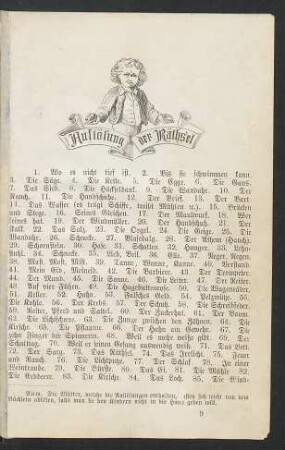 Auflösung der Räthsel
1. Wo es nicht tief ist. 2. Bis sie schwimmen kann
3. Die Säge. 4. Die Kette. 5. Die Egge. 6. Die Gans.
7. Das Sieb. 8. Die Häckselbank. 9. Die Wanduhr. 10. Der
Rauch. 11. Die Handschuhe. 12. Der Brief. 13. Der Bart
14. Das Wasser (es trägt Schiffe, treibt Mühlen u.). 15. Brücken
und Stege. 16. Seines Gleichen. 17. Der Maulwurf. 18. Wer
keines hat. 19. Der Windmüller. 20. Der Handschuh. 21. Der
Kalk. 22. Das Salz. 23. Die Orgel. 24. Die Geige. 25. Die
Wanduhr. 26. Die Schnecke. 27. Maissblug. 28. Der Athem (Hauch).
29. 30. Hals. 31. Schatten. 32. Hunger. 33.
34. Schnecke. 35. Lieb, Beil. 36. Elle. 37. Neger, Regen.
38. Mast. 39. Tanne, Wanne, Kanne. 40. Verstand.
41. Mein Eid, Meineid. 42. Die Barbiere. 43. Der Trompeter.
44. Der Mond. 45. Die Sonne. 46. Die Leiter. 47. Der Reiter.
48. Auf vier Füßen. 49. Die Hagebuttenrose. 50. Die Wagenräder.
51. Keller. 52. Hahn. 53. Falsches Geld. 54. Pelzmütze. 55.
Die Kohle. 56. Der Krebs. 57. Der Schuh. 58. Die Schreibfeder.
59. Reiter, Pferd und Sattel. 60. Der Zuckerhut. 61. Der Baum.
62. Die Lichtscheere. 63. Die Zunge zwischen den Zähnen. 64. Die
Kirsche. 65. Die Pflaume. 66. Der Hahn am Gewehr. 67. Die
zehn Finger des Spinnerin. 68. Weil es mehr weiße gibt. 69. Der
Schalttag. 70. Weil er keinen Gesang auswendig weiß. 71. Das Bett.
72. Der Sarg. 73. Das Räthsel. 74. Das Zweilicht. 75. Feuer
und Rauch. 76. Die Lichtputze. 77. Der Schlaf. 78. In einer
Weintraube. 79. Die Bürste. 80. Das Ei. 81. Die Mühle. 82.
Die Erdbeere. 83. Die Kirsche. 84. Das Loch. 85. Die Wind-
Anm. Die Blätter, welche die Auflösungen enthalten, lassen sich leicht von dem
Büchlein ablösen, falls man sie den Kindern nicht in die Hand geben will.
9